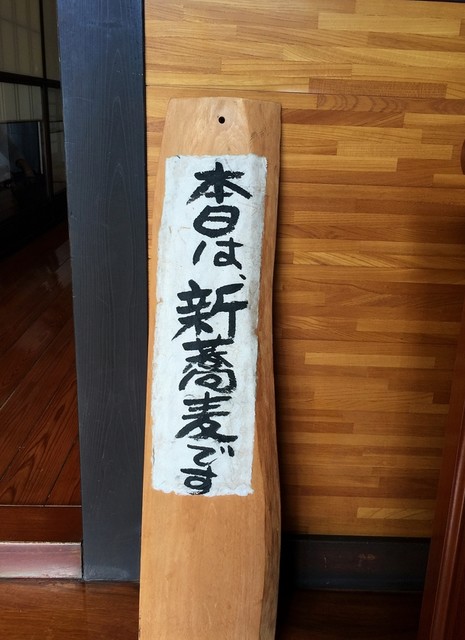 本日は、新蕎麦です